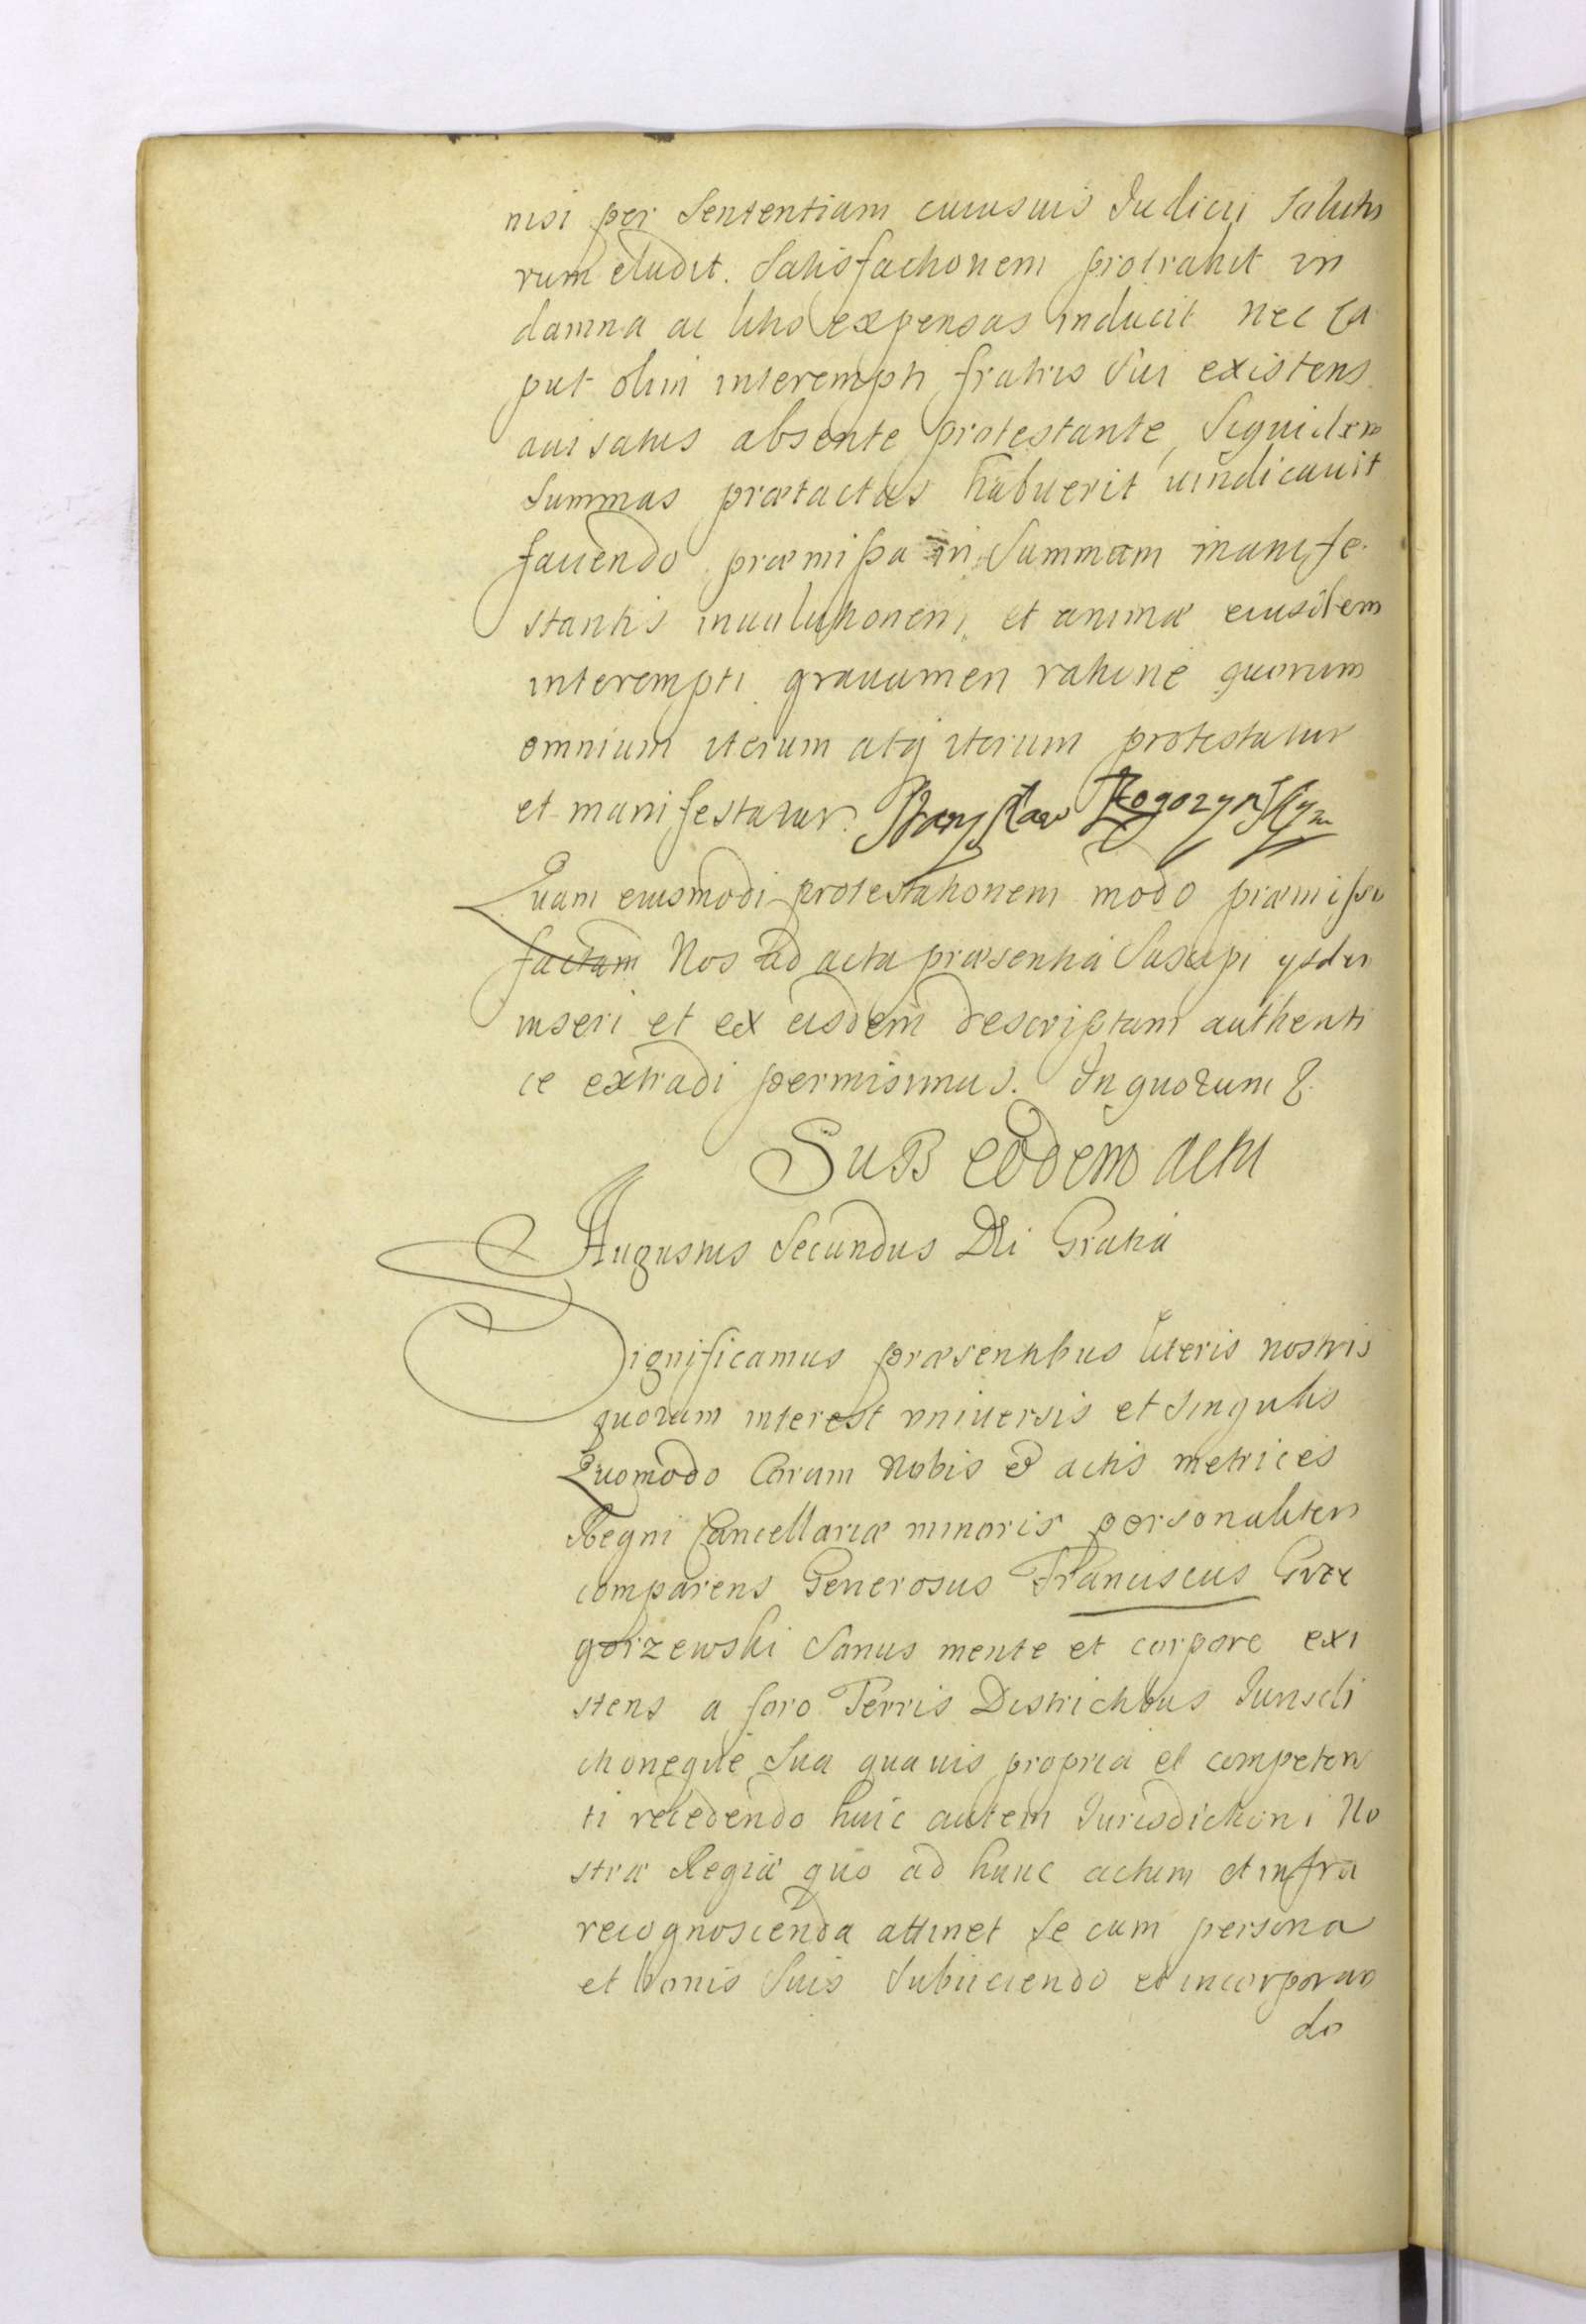 nisi per Sententiam cuiusuis Iudicij Soluto
rum eludit. Satisfactionem protrahit in
damna ac litis expensas inducit nec ca
put olim interempti fratris Sui existens
auisatus absente protestante, Siquidem
Summas prætactas habuerit vindicauit
fauendo præmissa in Summam manife
stantis inuolutionem, et animæ eiusdem
interempti grauamen ratione quorum
omnium iterum atq iterum protestatur
et manifestatur. Stanisław Rogozynsky
Quam eiusmodi protestationem modo præmisso
factam Nos ad acta præsentia Suscipi ysdem
inseri et ex eisdem descriptam authenti
ce extradi permisimus. In quorum &.
SuB eodem actu
Augustus Secundus Dei Gratia
Significamus præsentibus literis nostris
quorum interest vniuersis et singulis
Quomodo Coram Nobis et actis metrices
Regni Cancellariæ minoris personaliter
comparens Generosus Franciscus Grze
gorzewski Sanus mente et corpore exi
stens a foro Terris Districtibus Iurisdi
ctioneque Sua quauis propria et competen
ti recedendo huic autem Iurisdictioni No
stræ Regiæ quo ad hunc actum et infra
recognoscenda attinet Se cum persona
et bonis Suis Subiiciendo et incorporan
do